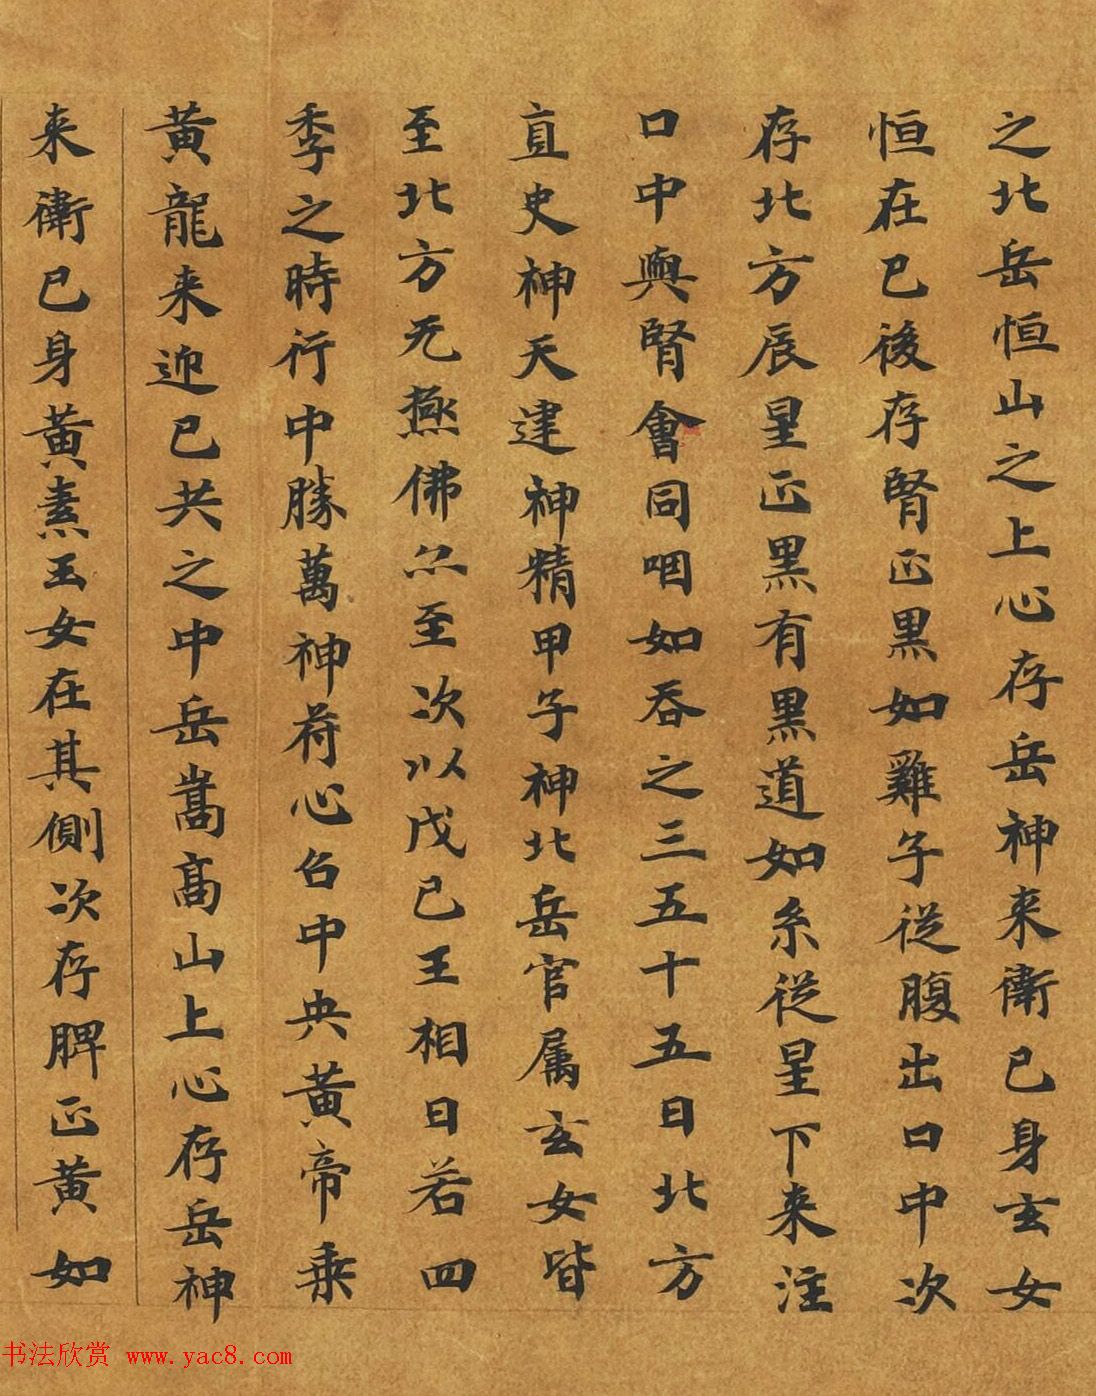 之北岳恒山之上心存岳神来衛己身玄女
恒在己後存腎正黒如雞子從腹出口中次
存北方辰星正黒有黒道如糸從星下来注
口中與腎會同咽如吞之三五十五日北方
直史神天建神精甲子神北岳官属玄女皆
至北方无極佛亦至次以戊己王相日若四
季之時行中勝萬神符心召中央黄帝乗
黄龍来迎己共之中岳嵩高山上心存岳神
来衛己身黄素玉女在其側次存脾正黄如
书法欣赏 www.yac8.com